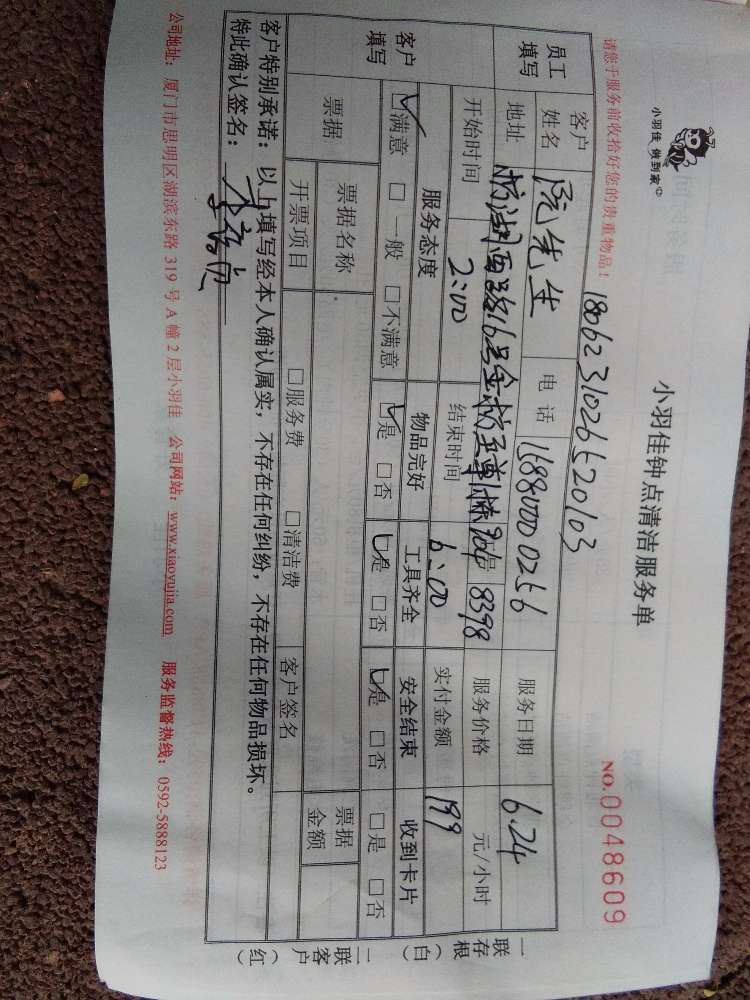 小羽佳 做到家
小羽佳钟点清洁服务单
NO.0048609
请您于服务前收拾好您的贵重物品！
1806231026520103
员工填写
客户姓名 阮先生 电话 15880000256 服务日期 6.24
地址 服务价格 元/小时
8398
开始时间 2:00 结束时间 6:00 实付金额 199
客户填写
服务态度 物品完好 工具齐全 安全结束 收到卡片
☑满意 □一般 □不满意 ☑是 □否 ☑是 □否 ☑是 □否 □是 □否
票据 票据名称 票据金额
开票项目 □服务费 □清洁费 客户签名
客户特别承诺：以上填写经本人确认属实，不存在任何纠纷，不存在任何物品损坏。
特此确认签名：
公司地址：厦门市思明区湖滨东路319号A幢2层小羽佳 公司网站：www.xiaoyujia.com 服务监督热线：0592-5888123
一联存根（白）
二联客户（红）